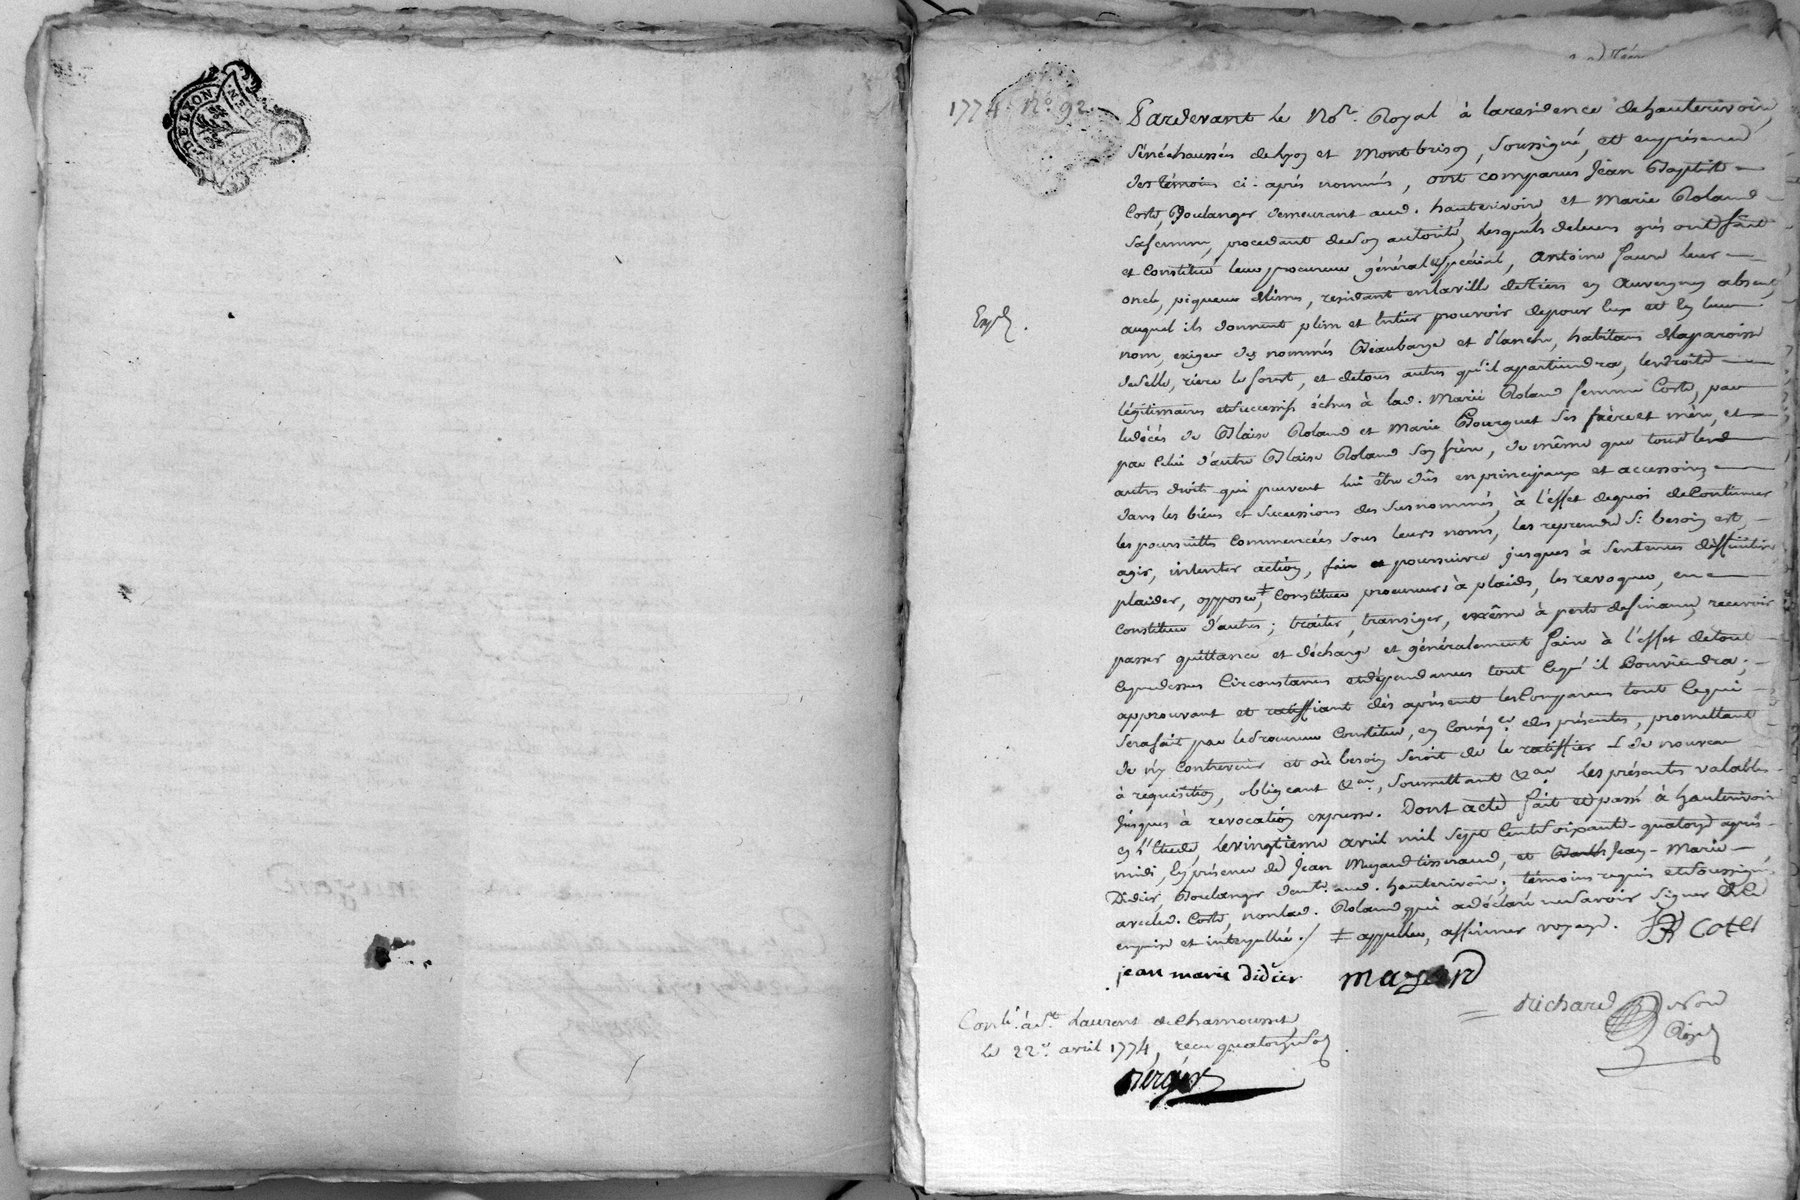 1774 nº 92.
Pardevant le Nore. Royal à la residence de hauterivoire,
Sénéchaussées de lyon et Montbrison, Soussigné, et en présence
des témoins ci-après nommés, ont comparus Jean Baptiste
Coste, Boulanger demeurant aud. hauterivoire, et Marie Roland
sa femme, procedant de son autorité, lesquels de leurs grés ont fait
et Constitué leur procureur général et spécial, Antoine faure leur
oncle, piqueur de limes, residant en la ville de Tiers en Auvergne, absent,
auquel ils donnent plein et Entier pouvoir de pour Eux et En leur
Expé.
nom, exiger des nommés Beaubarge et Planche, habitans de la paroisse
de Celle, riere le forest, et de tous autres qu'il apartiendra, les droits
légitimaires et Successifs échus à lad. Marie Roland femme Coste, par
le décés de Blaise Roland et Marie Bourguet Ses père et mère, et
par Celui d'autre Blaise Roland Son frère, de même que tous les
autres droits qui peuvent lui être dûs en principaux et accessoires
dans les biens et Successions des Susnommés, à l'effet de quoi de Continuer
les poursuittes Commencées sous leurs noms, les reprendre Si besoin est,
agir, intenter action, faire et poursuivre jusques à Sentence déffinitive
plaider, opposer, ‡ Constituer procureurs à plaids, les revoquer, en
Constituer d'autres; traiter, transiger, même à perte de finance, recevoir
passer quittance et décharge et généralement faire à l'effet de tout
Ce que dessus Circonstances et dépendances tout Ce qu'il Conviendra;
approuvant et ratiffiant dès à présent les Comparus tout Ce qui
Sera fait par le Procureur Constitué, en Conséqce. des présentes, promettant
de n'y Contrevenir et où besoin Seroit de le ratiffier de nouveau
à requisition, obligeant &a., Soumettant &a. les présentes valables
jusques à revocation expresse. Dont acte fait et passé à hauterivoire
en l'Etude le vingtieme avril mil Sept Cent Soixante-quatorze après-
midi, En présence de Jean Mazard tisserand, et Jean-Marie
Didier, Boulanger demt. aud. hauterivoire, témoins requis et Soussignés
avec led. Coste, non lad. Roland qui a déclaré ne Savoir Signer de ce
enquise et interpellée./. ‡ appeller, affirmer voyage.
JB Coste
jean marie didier
mazard
Richard
Nore
Royal
Conlé. à St. Laurent de Chamousset
le 22e. avril 1774, reçu quatorze Sols
Berger